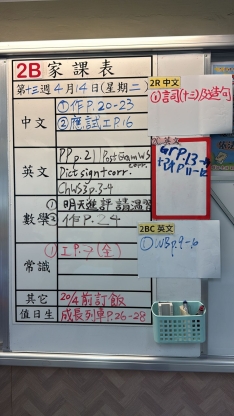 2B 家課表
第十三週 4月14日(星期二)
中文
①作P.20-23
②應試工P.16
英文
PP p.21 Post Gram WS corr.
Dict sign+corr.
Ch WS3 p.3-4
數學
①明天進評 請溫習
②作P.24
常識
①工P.7(全)
其它
20/4前訂飯
值日生
成長列車P.26-28
2R 中文
①言司(十三)及造句
英文
GP P.13
P.11-12
2BC 英文
①WB p.9-10